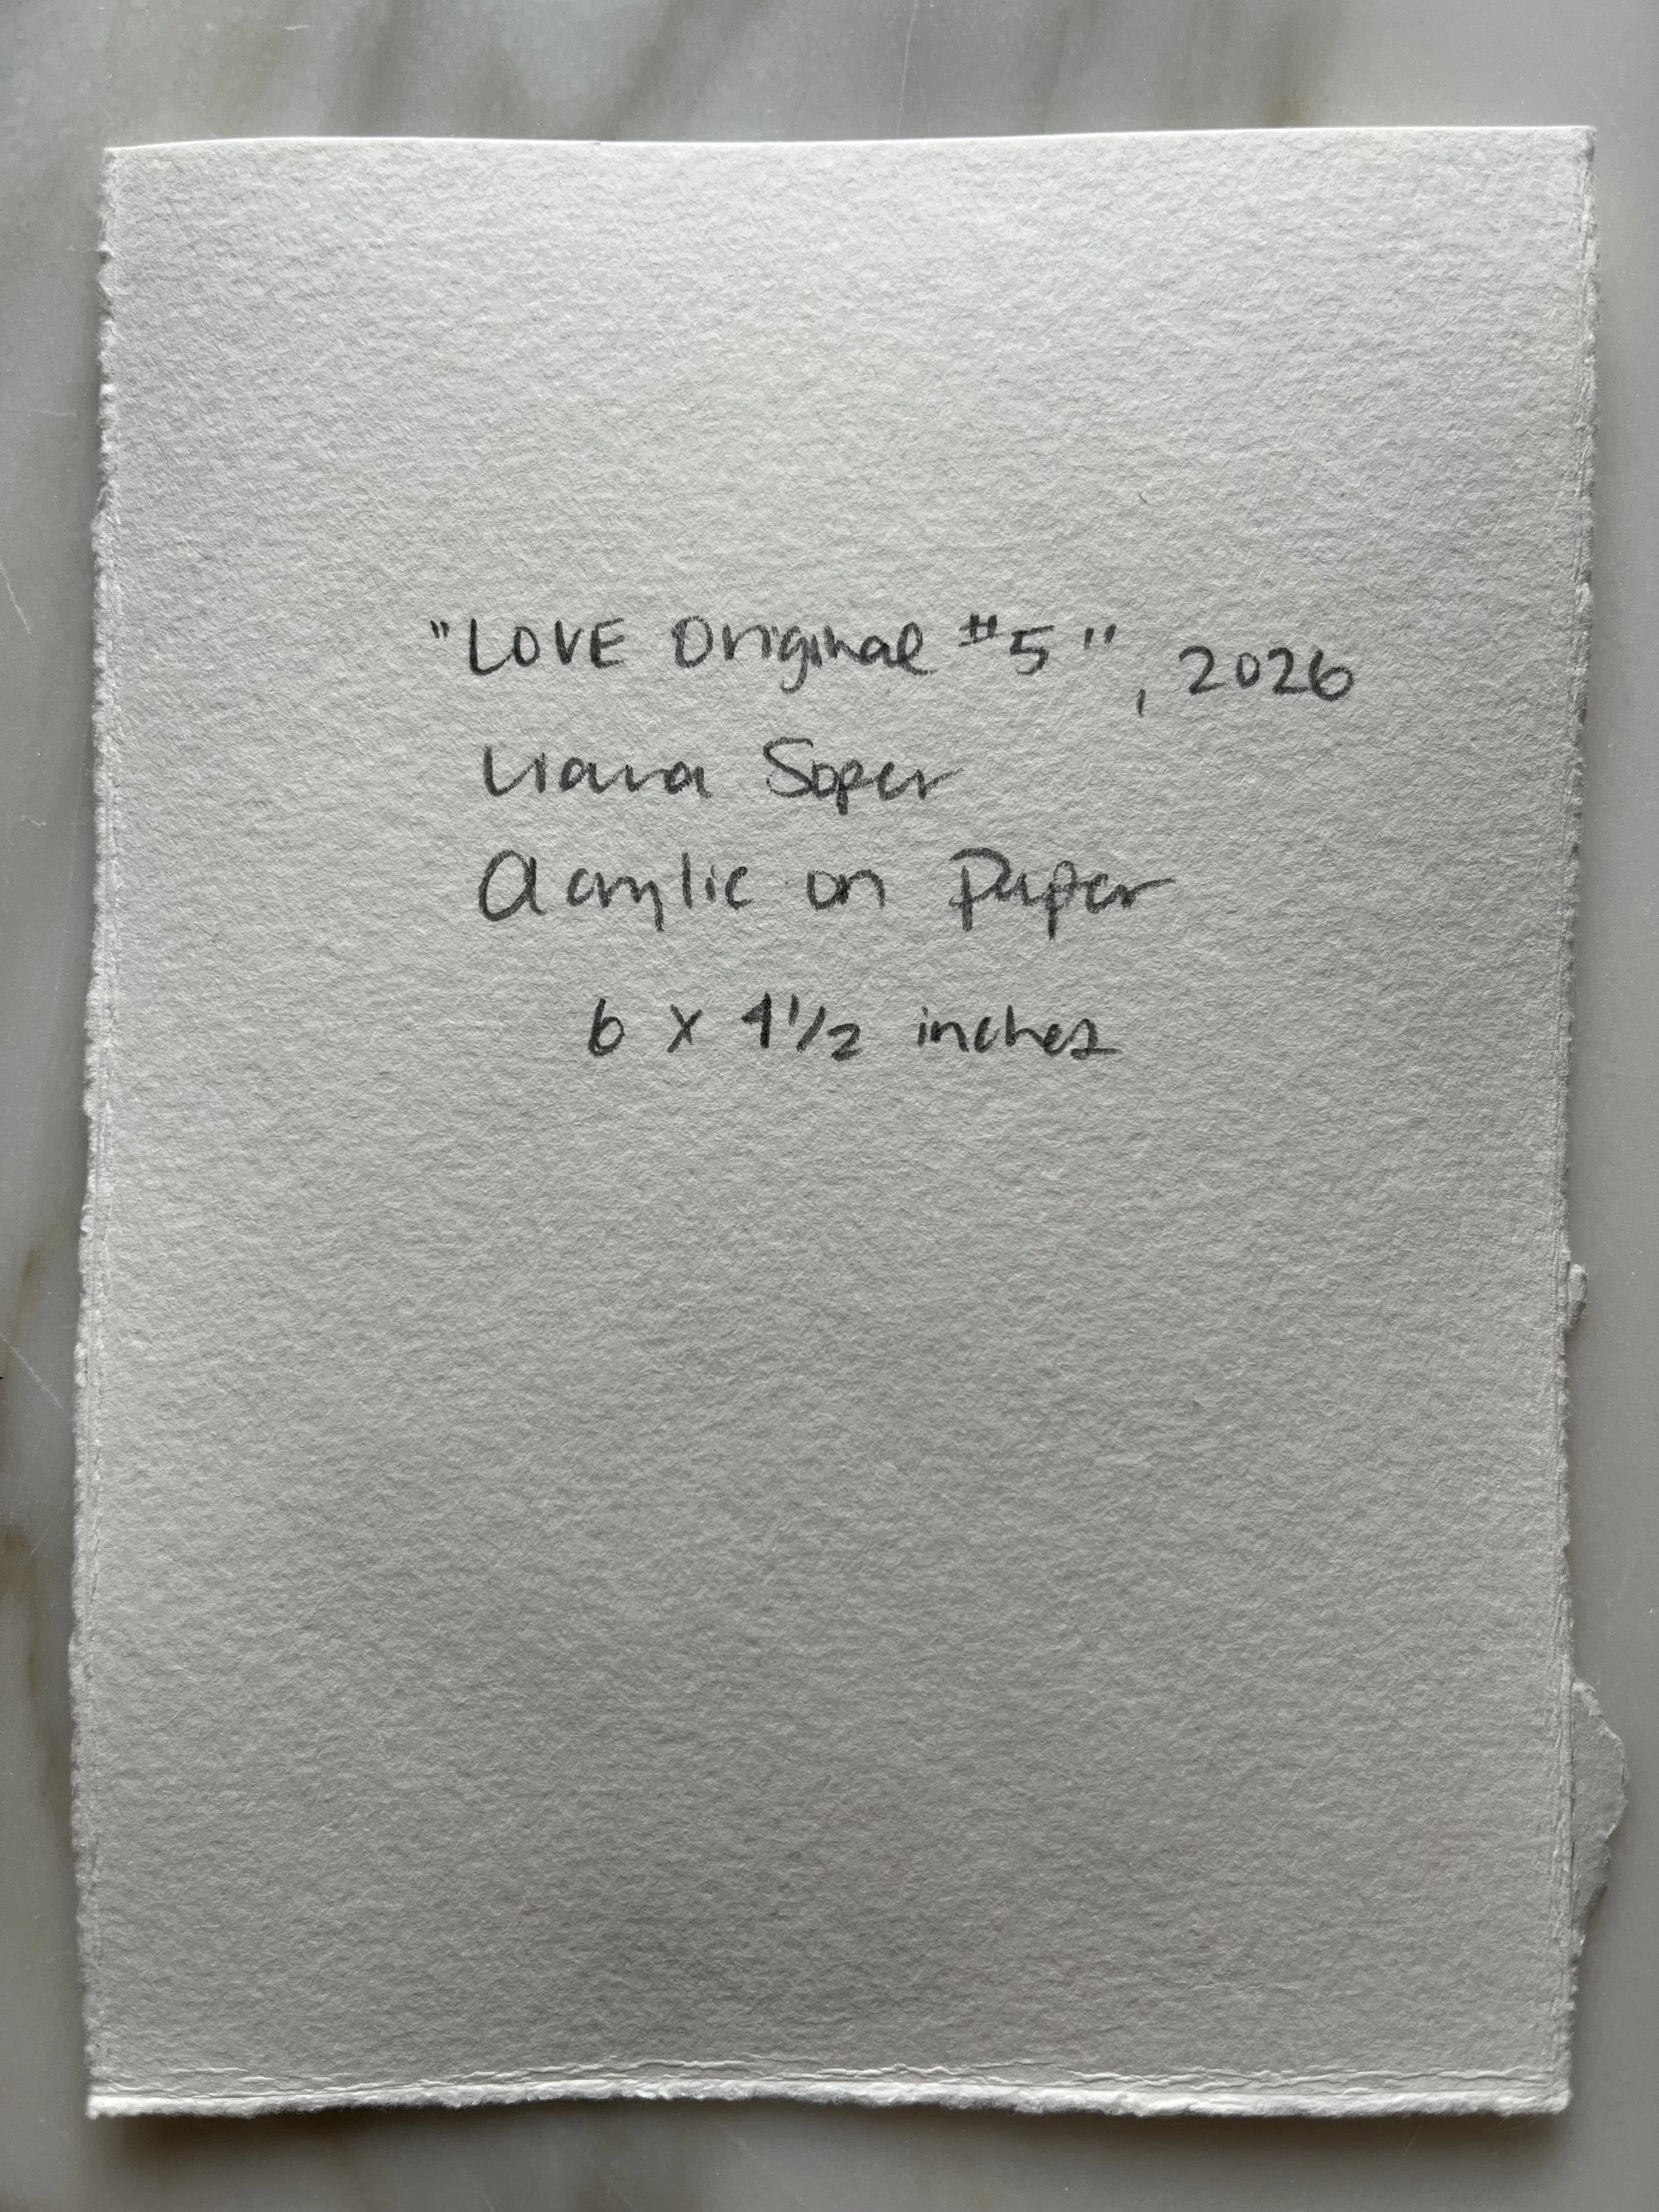 "LOVE Original #5", 2026
Liana Soper
Acrylic on Paper
6 x 4 1/2 inches